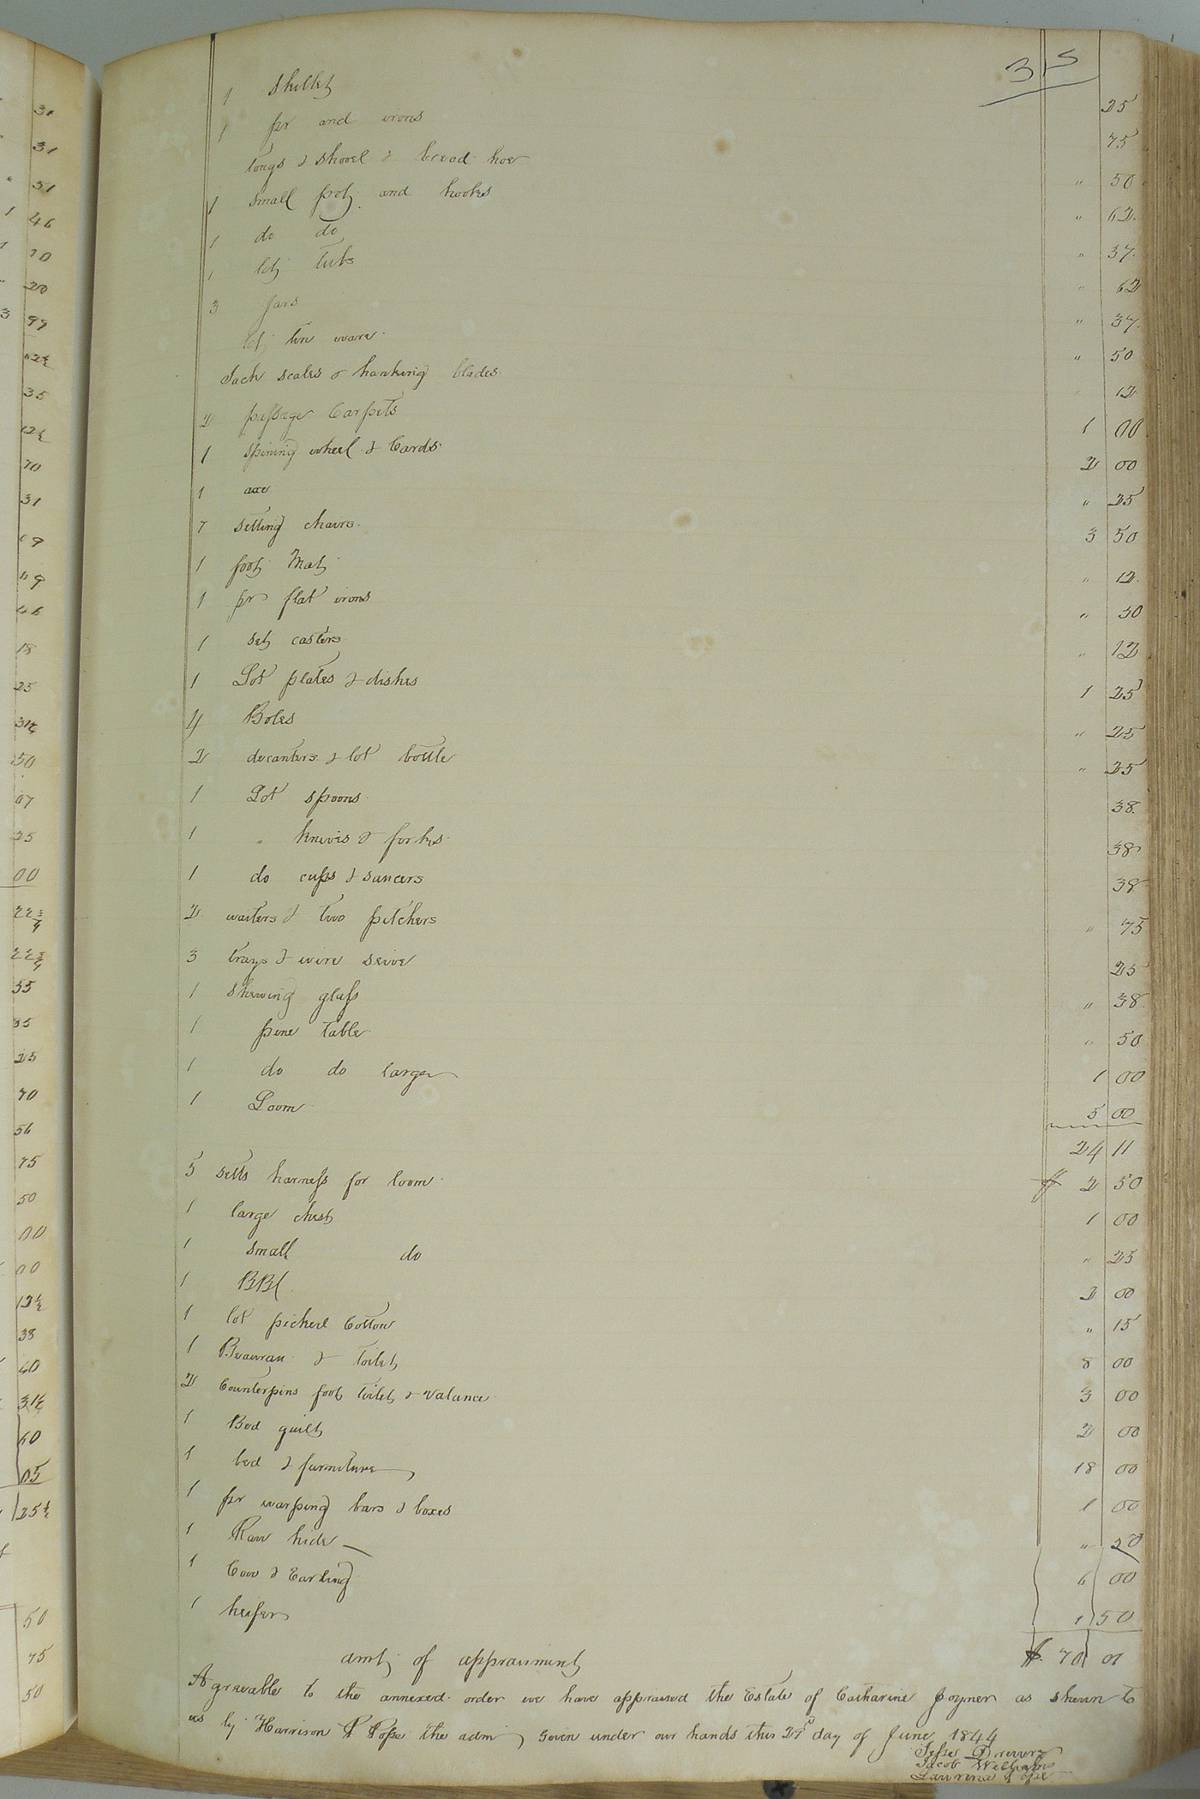 35
1 Skillet 25
1 pr and irons 75
tongs & shovel & bread hoe " 50
1 small pot and hooks " 62
1 do do " 37
1 lot tubs " 62
3 Jars " 37
lot tin ware " 50
Jack scales & hanking blades 12
2 passage Carpits 1 00
1 spining wheel & Cards 2 00
1 axe " 25
7 setting chairs 3 50
1 foot Mat " 12
1 pr flat irons " 50
1 set casters " 12
1 Lot plates & dishes 1 25
4 Boles " 25
2 decanters & lot bottle " 25
1 Lot spoons 38
1 " knives & forks 38
1 do cups & saucers 38
2 waiters & two pitchers " 75
3 trays & wire seive 25
1 shewing glass " 38
1 pine table " 50
1 do do larger 1 00
1 Loom 5 00
24 11
5 setts harness for loom $ 2 50
1 large chest 1 00
1 small do " 25
1 BBl 2 00
1 lot picked Cotton " 15
1 Beaurau & toilet 8 00
2 Counterpins foot toilet & valance 3 00
1 Bed quilt 2 00
1 bed & furniture 18 00
1 pr warping bars & boxes 1 00
1 Raw hide " 20
1 Cow & Earling 6 00
1 heifer 1 50
amt of appraisment $ 70 01
Agreeable to the annexed order we have appraised the Estate of Catharine Joyner as shewn to
us by Harrison P Pope the adm Given under our hands this 27th day of June 1844
Jesse Drewery
Jacob Williams
Lawrence Pope
31
31
51
46
10
20
99
62½
35
12½
70
31
69
69
46
18
25
31¼
50
07
25
00
22¾
22¾
55
35
25
70
56
75
50
00
00
12½
38
40
31¼
60
05
25½
50
75
50